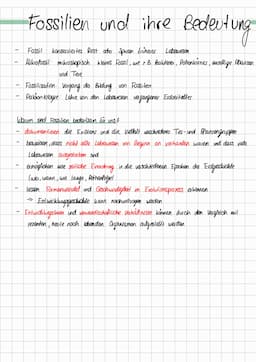 Fossilien und ihre Bedeutung
- Fossil: konservierter Rest oder Spuren früherer Lebewesen
- Mikrofossil: mikroskopisch kleines Fossil, wie z.B. Bakterien, Pollenkörner, einzellige Pflanzen
und Tiere
- Fossilisation: Vorgang der Bildung von Fossilien
- Paläontologie: Lehre von den Lebewesen vergangener Erdzeitalter
Warum sind Fossilien bedeutsam für uns?
- dokumentieren die Existenz und die Vielfalt verschiedener Tier- und Pflanzengruppen
- beweisen, dass nicht alle Lebewesen von Beginn an vorhanden waren und dass viele
Lebewesen ausgestorben sind
- ermöglichen eine zeitliche Einordnung in die verschiedenen Epochen der Erdgeschichte
(wo, wann, wie lange, Reihenfolge)
- lassen Formenwandel und Geschwindigkeit im Evolutionsprozess erkennen
→ Entwicklungsgeschichte kann nachvollzogen werden
- Entwicklungslinien und verwandtschaftliche Verhältnisse können durch den Vergleich mit
rezenten, heute noch lebenden Organismen aufgestellt werden